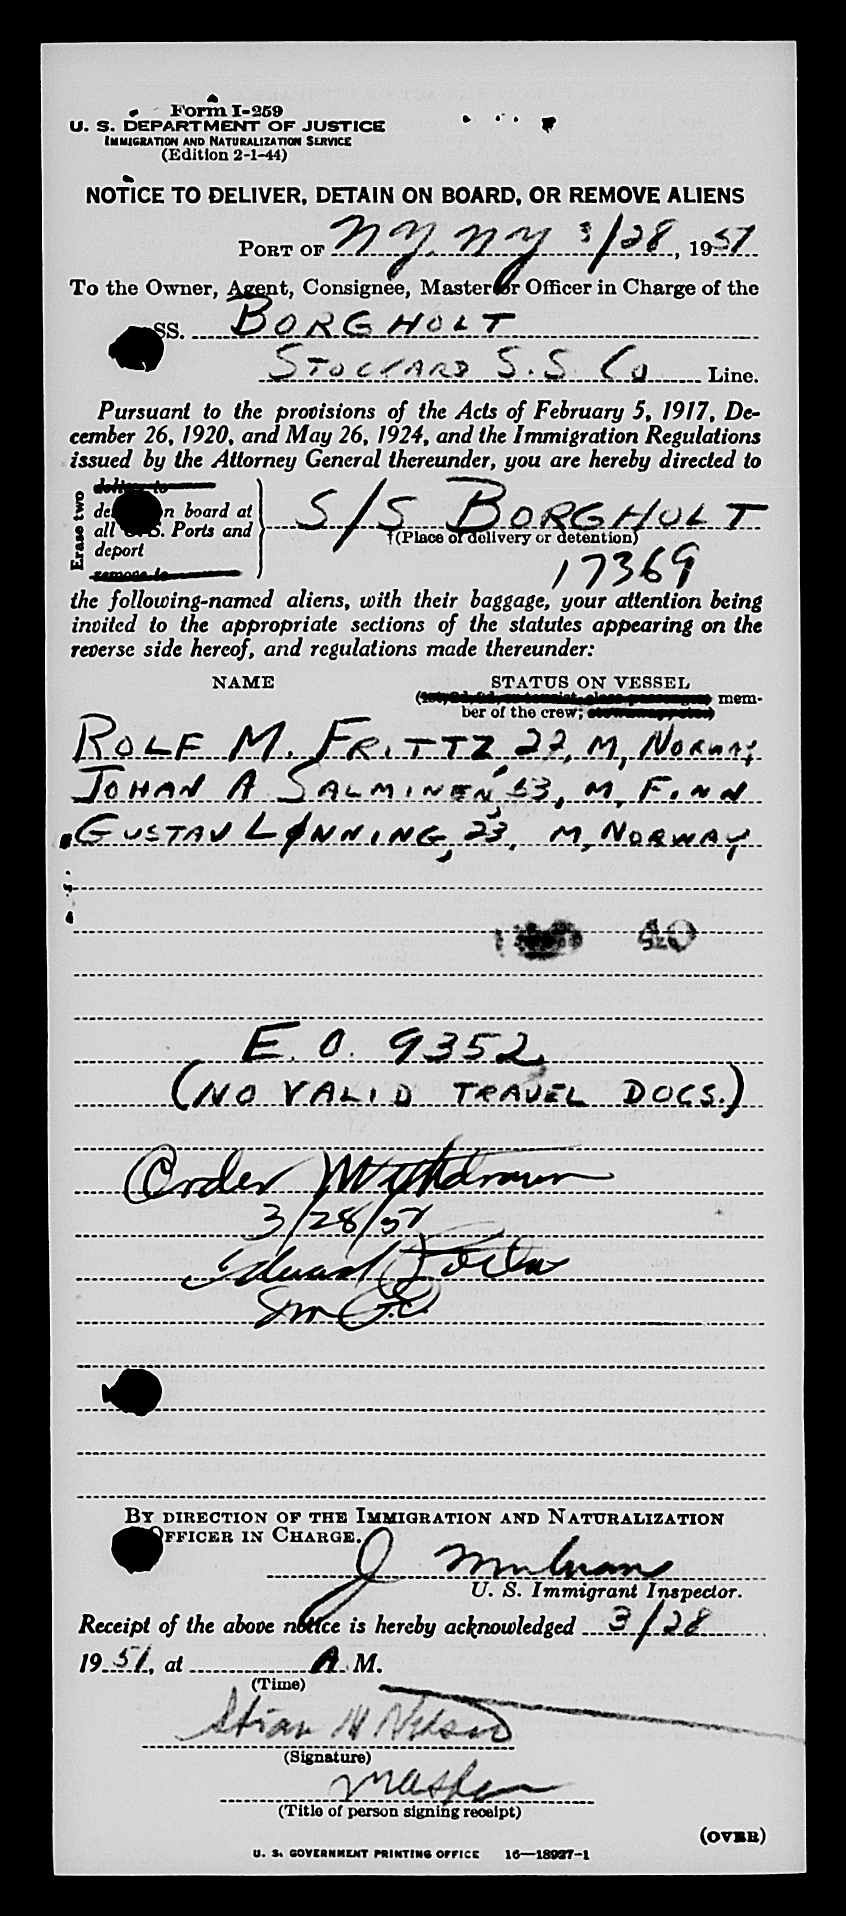 Form I-259
U. S. DEPARTMENT OF JUSTICE
IMMIGRATION AND NATURALIZATION SERVICE
(Edition 2-1-44)
NOTICE TO DELIVER, DETAIN ON BOARD, OR REMOVE ALIENS
PORT OF N Y. N Y 3/28, 1951
To the Owner, Agent, Consignee, Master or Officer in Charge of the
SS. BORGHOLT
STOCKARD S.S. Co Line.
Pursuant to the provisions of the Acts of February 5, 1917, De-
cember 26, 1920, and May 26, 1924, and the Immigration Regulations
issued by the Attorney General thereunder, you are hereby directed to
Erase two
deliver to
n board at
all S. Ports and
deport
remove to
S/S BORGHOLT
†(Place of delivery or detention)
17369
the following-named aliens, with their baggage, your attention being
invited to the appropriate sections of the statutes appearing on the
reverse side hereof, and regulations made thereunder:
NAME STATUS ON VESSEL
mem-
ber of the crew;
ROLF M. FRITTZ, 22, M, NORWAY
JOHAN A SALMINEN, 53, M, FINN
GUSTAV LØNNING, 23, M, NORWAY
E. O. 9352
(NO VALID TRAVEL DOCS.)
Order Withdrawn
3/28/51
Edward
BY DIRECTION OF THE IMMIGRATION AND NATURALIZATION
OFFICER IN CHARGE.
J
U. S. Immigrant Inspector.
Receipt of the above notice is hereby acknowledged 3/28
1951, at A. M.
(Time)
(Signature)
Master
(Title of person signing receipt)
(OVER)
U. S. GOVERNMENT PRINTING OFFICE 16—18927-1